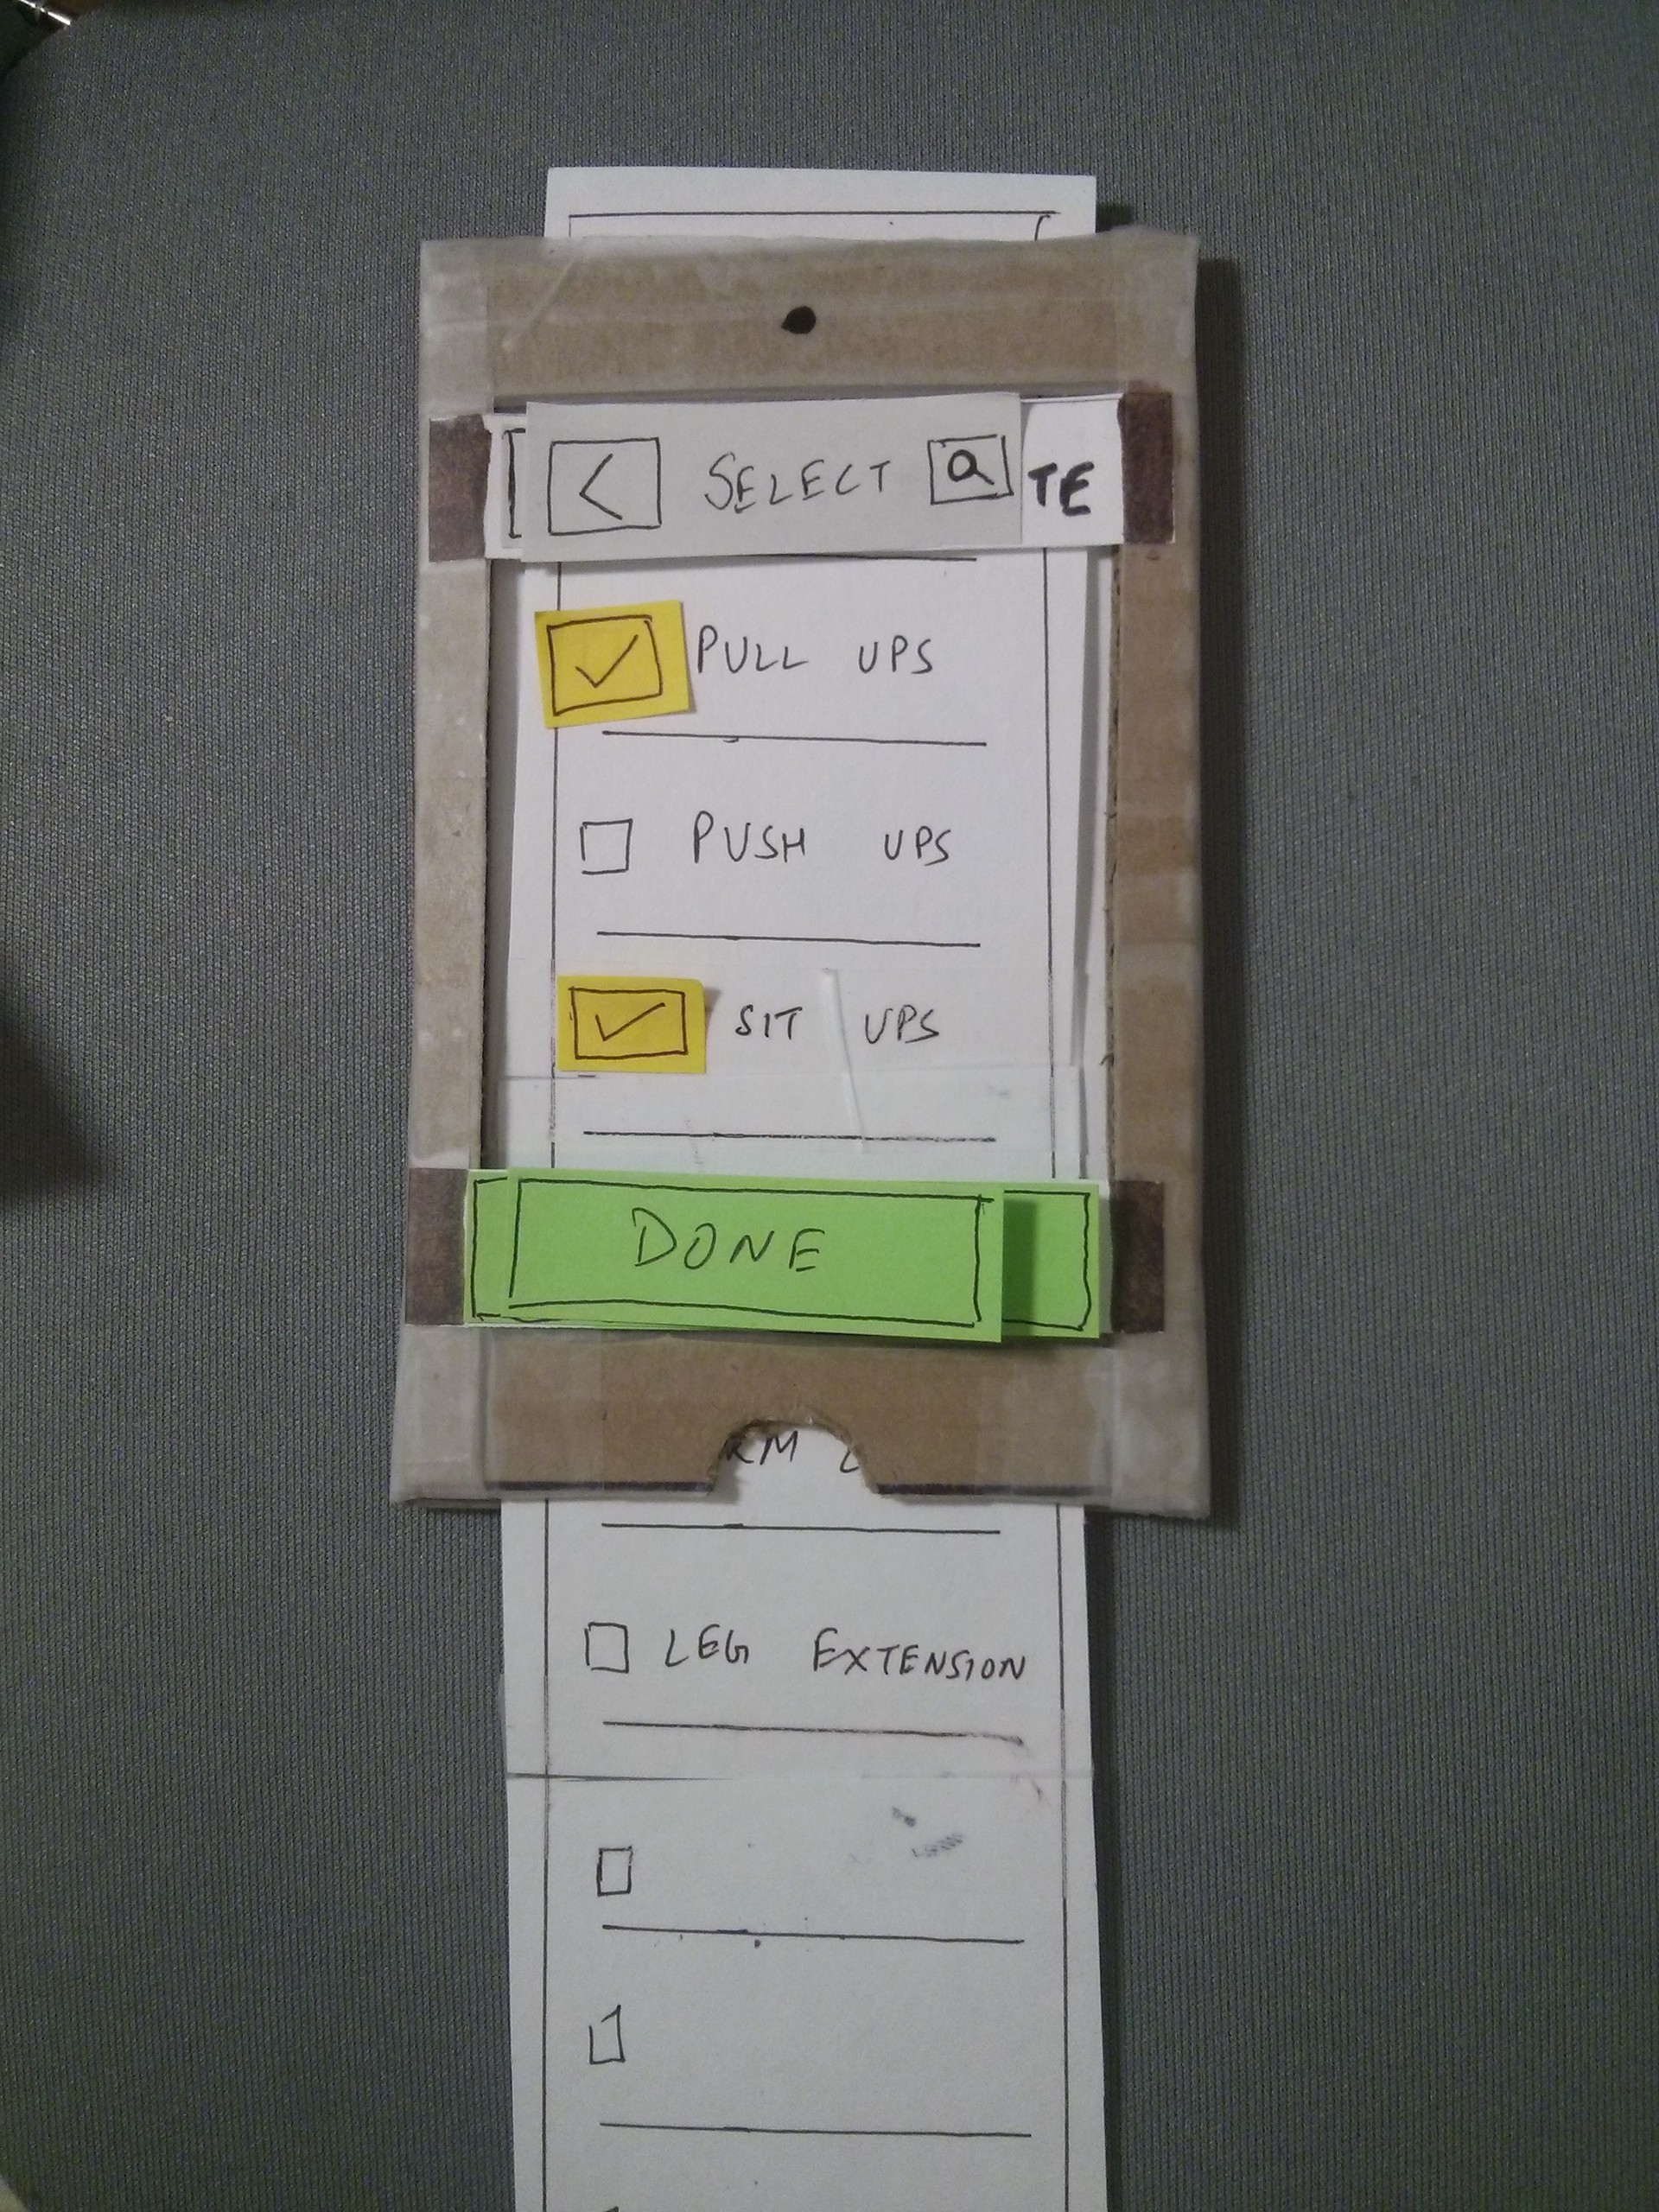 < SELECT TE
PULL UPS
PUSH UPS
SIT UPS
DONE
LEG EXTENSION